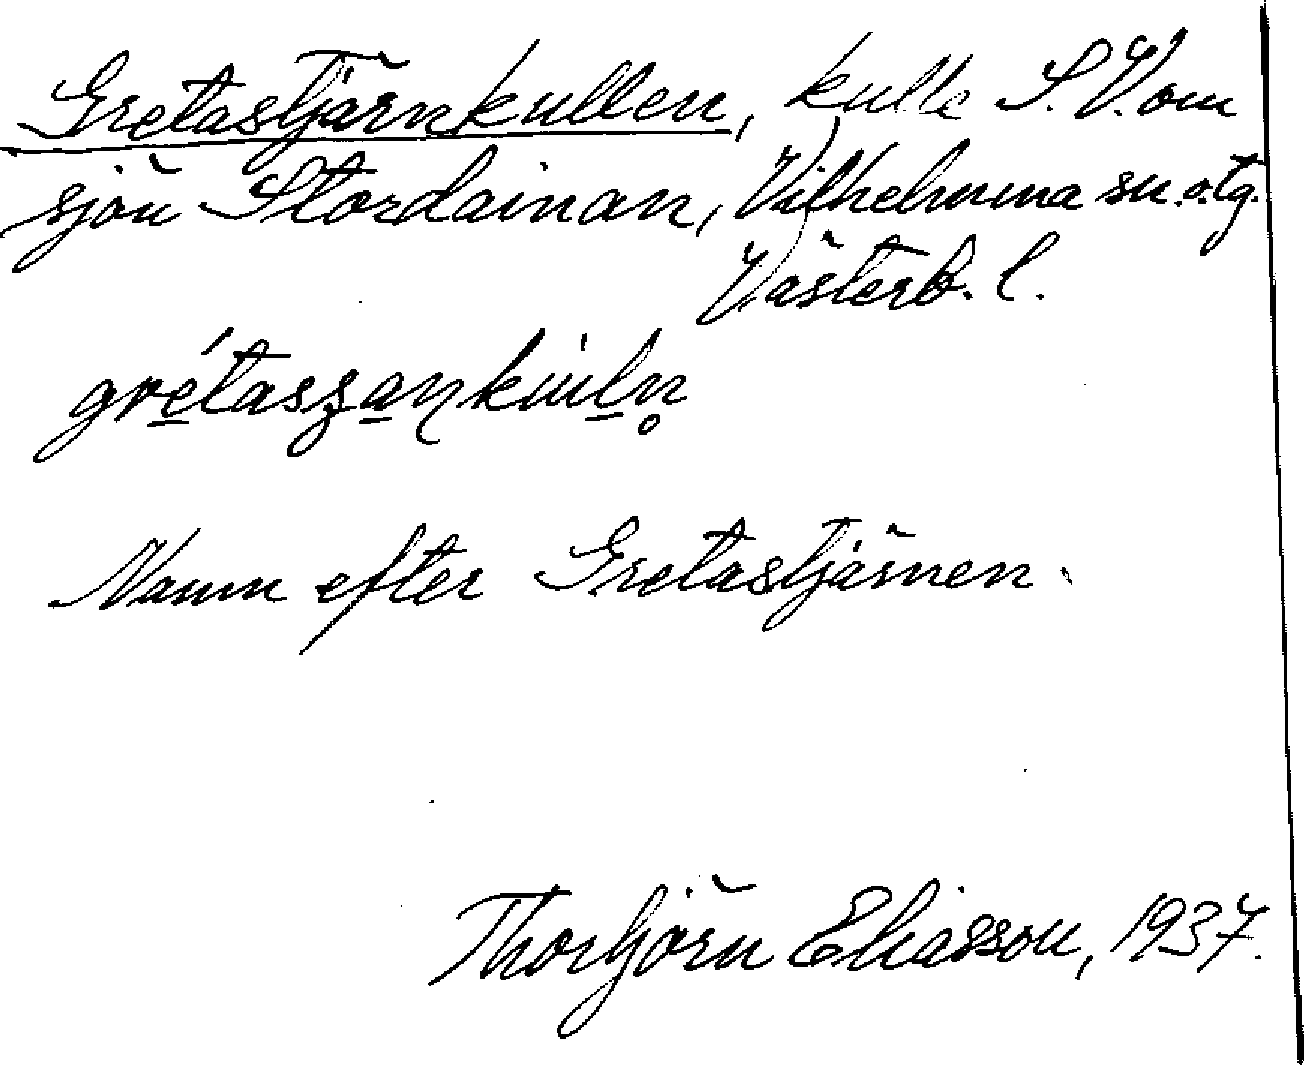 Gretastjärnkullen, kulle S.V. om
sjön Stordainan, Vilhelmina sn. o. tg.
Västerb. l.
Namn efter Gretastjärnen.
Thorbjörn Eliasson, 1937.